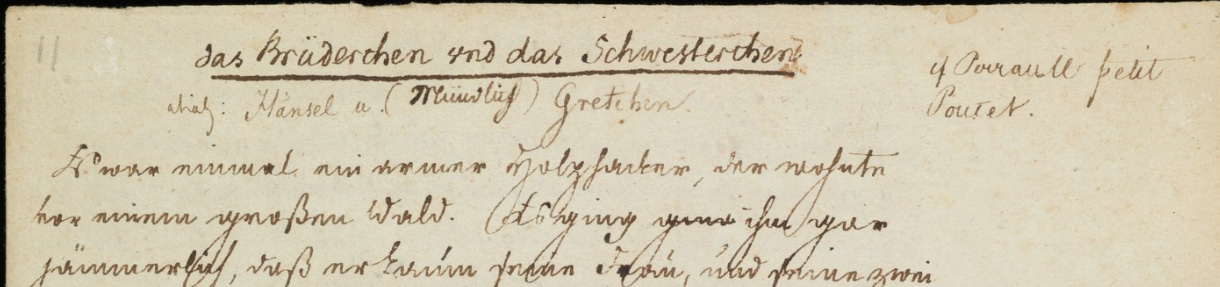 11
das Brüderchen und das Schwesterchen
cf Perrault petit
Poucet.
alias: Hänsel u. (Mündlich) Gretchen.
Es war einmal ein armer Holzhacker, der wohnte
vor einem großen Wald. Es ging ihm gar
jämmerlich, daß er kaum seine Frau, und seine zwei